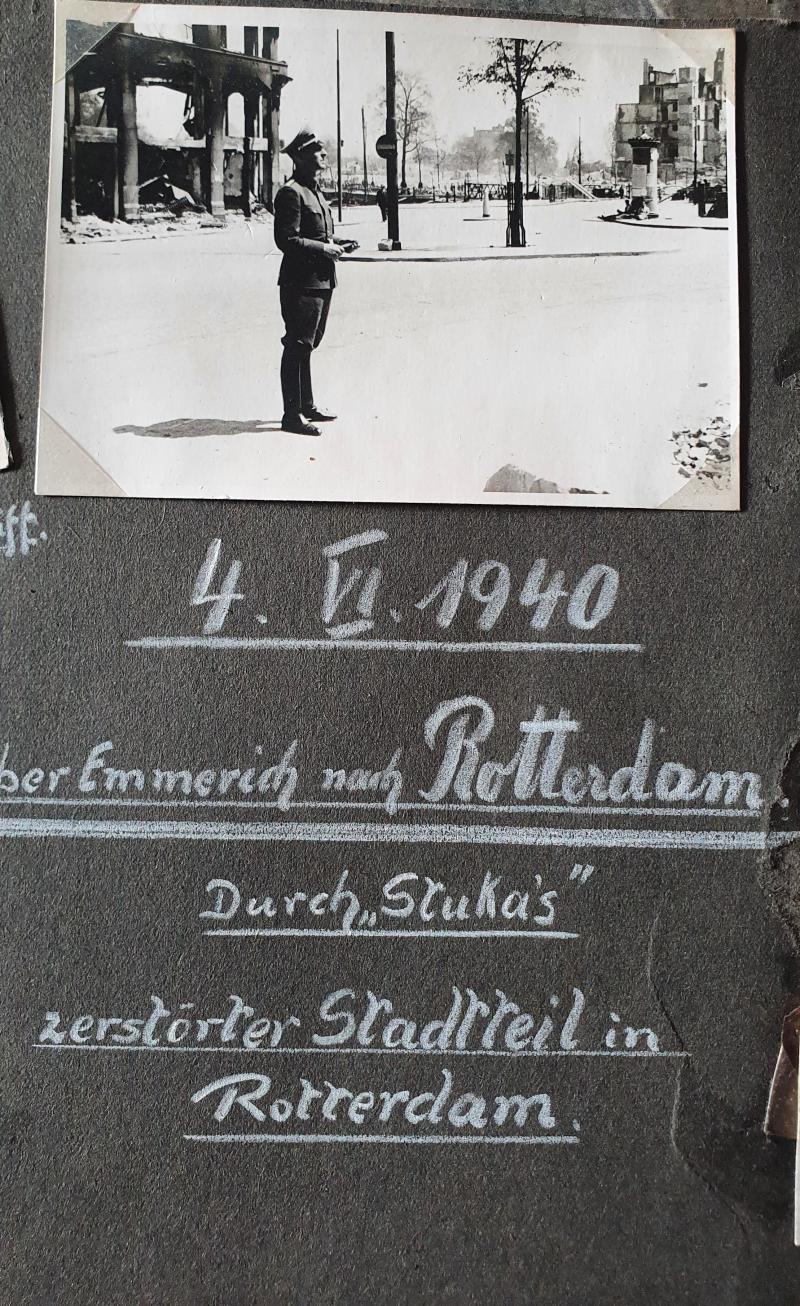 4. VI. 1940
ber Emmerich nach Rotterdam.
Durch „Stuka's”
zerstörter Stadtteil in
Rotterdam.